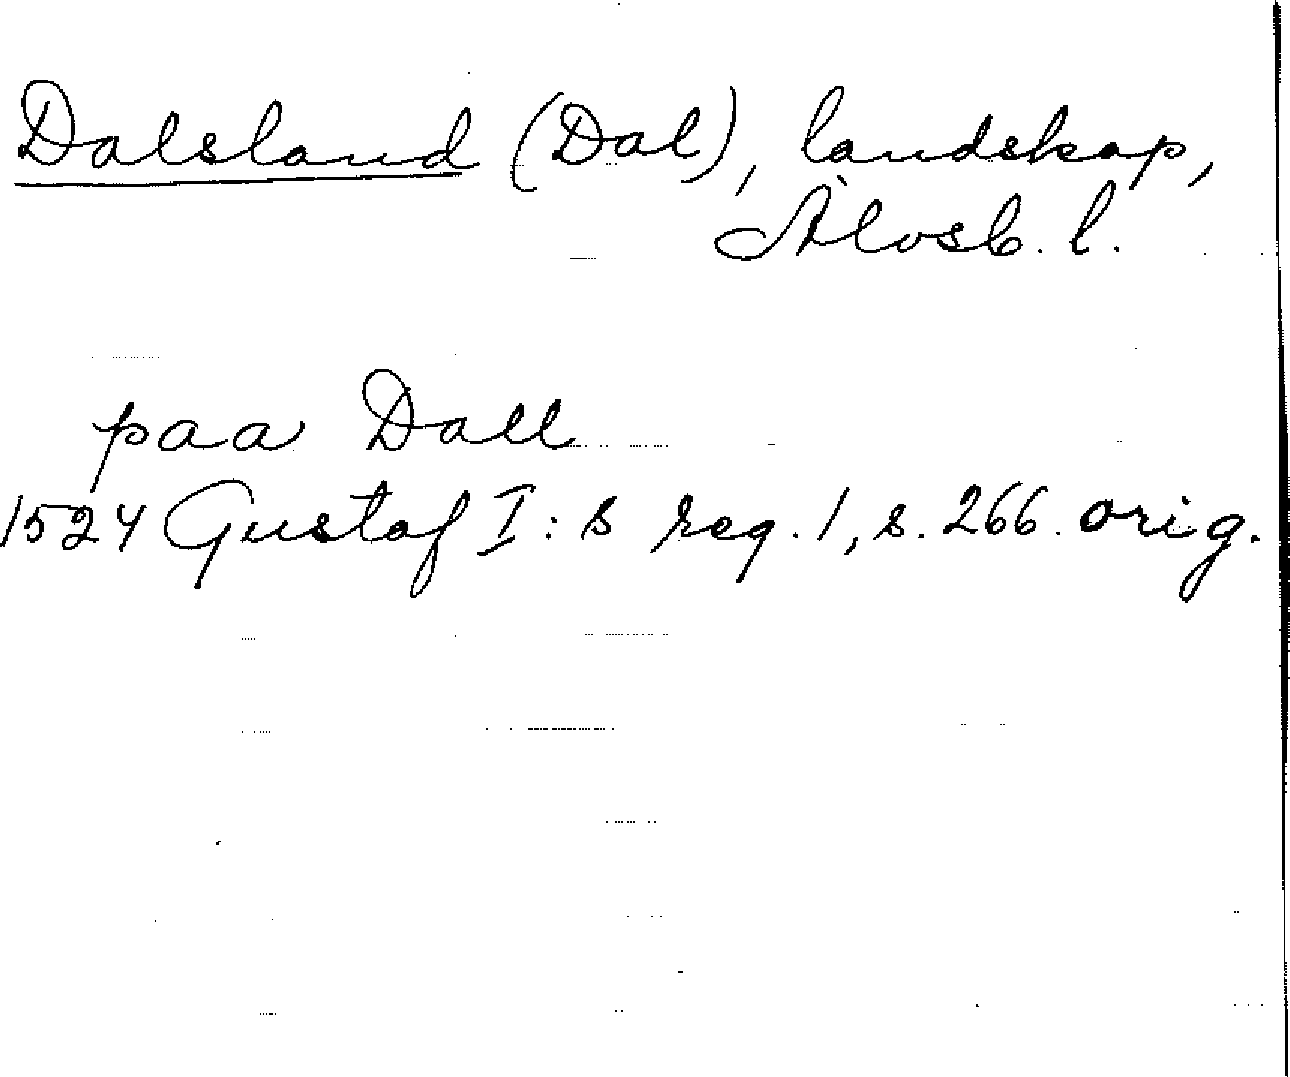 Dalsland (Dal), landskap,
Älvsb. l.
paa Dall
1524 Gustaf I:s reg. 1, s. 266. orig.